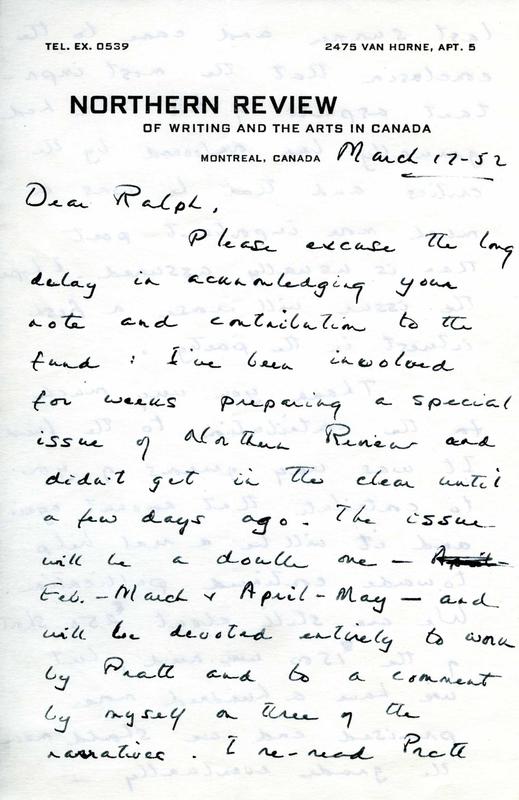 TEL. EX. 0539 2475 VAN HORNE, APT. 5
NORTHERN REVIEW
OF WRITING AND THE ARTS IN CANADA
MONTREAL, CANADA March 17-52
Dear Ralph,
Please excuse the long
delay in acknowledging your
note and contribution to the
fund : I've been involved
for weeks preparing a special
issue of Northern Review and
didn't get in the clear until
a few days ago. The issue
will be a double one — April-
Feb.-March & April-May — and
will be devoted entirely to work
by Pratt and to a comment
by myself on three of the
narratives. I re-read Pratt